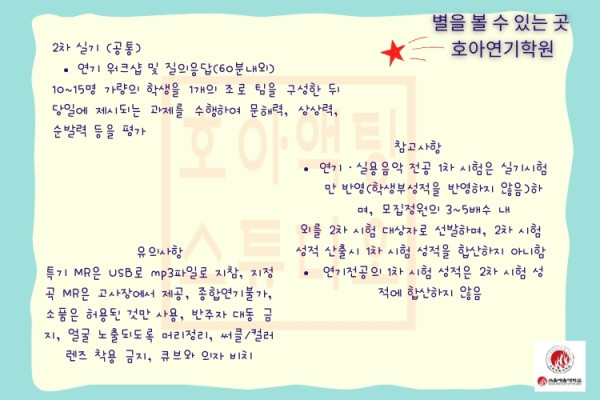 별을 볼 수 있는 곳
호아연기학원
2차 실기 (공통)
• 연기 워크샵 및 질의응답(60분내외)
10~15명 가량의 학생을 1개의 조로 팀을 구성한 뒤
당일에 제시되는 과제를 수행하여 문해력, 상상력,
순발력 등을 평가
참고사항
• 연기·실용음악 전공 1차 시험은 실기시험
만 반영(학생부성적을 반영하지 않음)하
며, 모집정원의 3~5배수 내
외를 2차 시험 대상자로 선발하며, 2차 시험
성적 산출시 1차 시험 성적을 합산하지 아니함
• 연기전공의 1차 시험 성적은 2차 시험 성
적에 합산하지 않음
유의사항
특기 MR은 USB로 mp3파일로 지참, 지정
곡 MR은 고사장에서 제공, 종합연기불가,
소품은 허용된 것만 사용, 반주자 대동 금
지, 얼굴 노출되도록 머리정리, 써클/컬러
렌즈 착용 금지, 큐브와 의자 비치
호아액팅
스튜디오
서울예술대학교